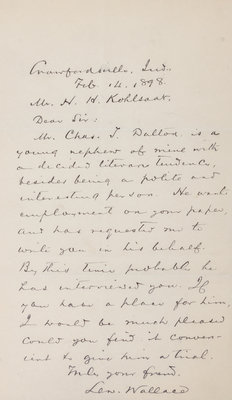 Crawfordsville, Ind.
Feb. 14. 1898.
Mr. H. H. Kohlsaat.
Dear Sir:
Mr. Chas. T. is a
young nephew of mine with
a decided literary tendency,
besides being a polite and
interesting person. He wants
employment on your paper,
and has requested me to
write you in his behalf.
By this time probably he
has interviewed you. If
you have a place for him,
I would be much pleased
could you find it conven-
ient to give him a trial.
Truly your friend.
Lew. Wallace